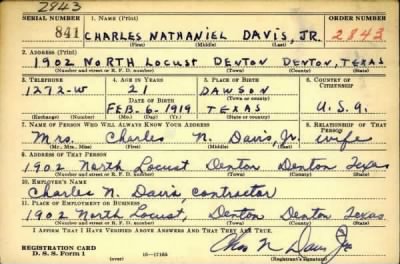 2843
SERIAL NUMBER 1. NAME (Print) ORDER NUMBER
841 CHARLES NATHANIEL DAVIS, JR. 2843
(First) (Middle) (Last)
2. ADDRESS (Print)
1902 NORTH LOCUST DENTON DENTON, TEXAS
(Number and street or R. F. D. number) (Town) (County) (State)
3. TELEPHONE 4. AGE IN YEARS 5. PLACE OF BIRTH 6. COUNTRY OF CITIZENSHIP
1272-W 21 DAWSON
DATE OF BIRTH (Town or county)
FEB. 6 - 1919 TEXAS U.S.A.
(Exchange) (Number) (Mo.) (Day) (Yr.) (State or country)
7. NAME OF PERSON WHO WILL ALWAYS KNOW YOUR ADDRESS 8. RELATIONSHIP OF THAT PERSON
Mrs. Charles N. Davis, Jr. wife
(Mr., Mrs., Miss) (First) (Middle) (Last)
9. ADDRESS OF THAT PERSON
1902 North Locust Denton Denton Texas
(Number and street or R. F. D. number) (Town) (County) (State)
10. EMPLOYER'S NAME
Charles N. Davis, contractor
11. PLACE OF EMPLOYMENT OR BUSINESS
1902 North Locust, Denton Denton Texas
(Number and street or R. F. D. number) (Town) (County) (State)
I AFFIRM THAT I HAVE VERIFIED ABOVE ANSWERS AND THAT THEY ARE TRUE.
REGISTRATION CARD
D. S. S. Form 1 (over) 16—17105 Chas N Davis Jr
(Registrant's signature)